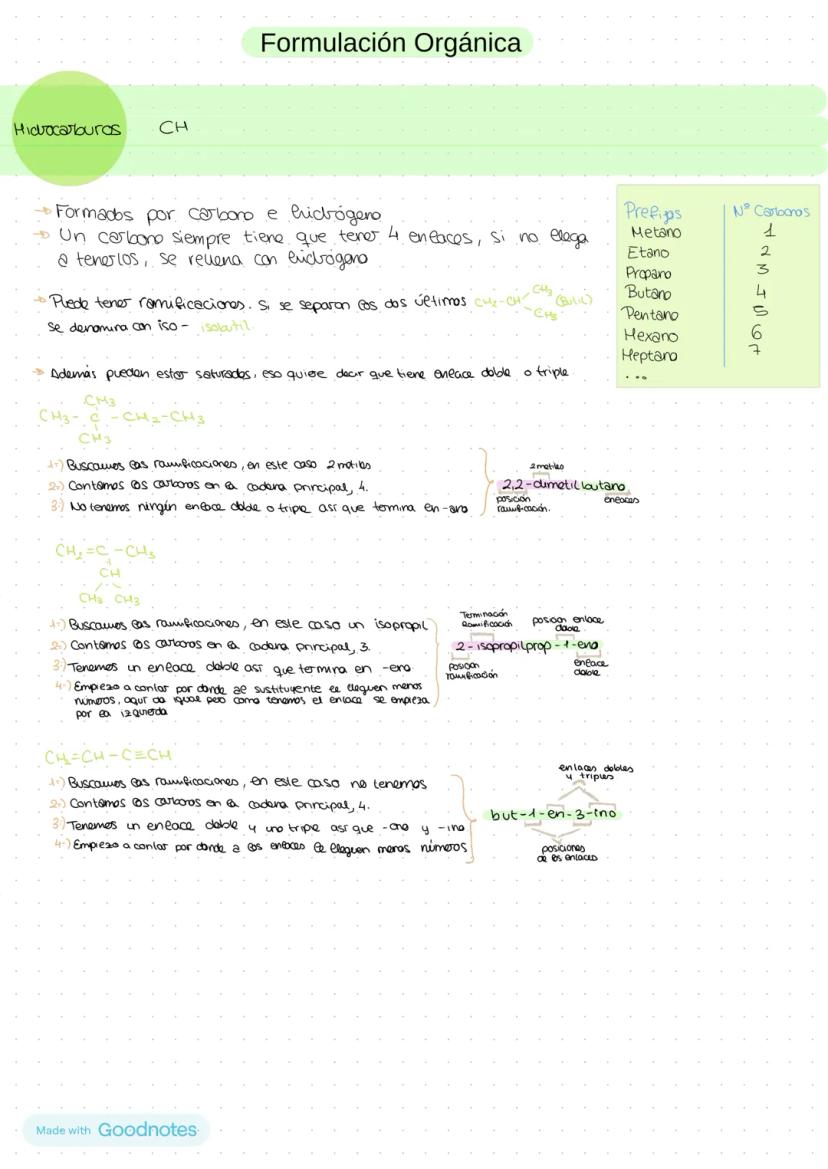 Formulación Orgánica
Hidrocarburos CH
→ Formados por carbono e hidrógeno
→ Un carbono siempre tiene que tener 4 enlaces, si no llega
a tenerlos, se rellena con hidrógeno
→ Puede tener ramificaciones. Si se separan los dos últimos CH₂-CH CH₃ CH₃ (Butil)
se denomina con iso- isobutil.
→ Además pueden estar saturados, eso quiere decir que tiene enlace doble o triple
Prefijos Nº Carbonos
Metano 1
Etano 2
Propano 3
Butano 4
Pentano 5
Hexano 6
Heptano 7
...
CH₃
CH₃- C -CH₂-CH₃
CH₃
1º) Buscamos las ramificaciones, en este caso 2 metilos
2º) Contamos los carbonos en la cadena principal, 4.
3º) No tenemos ningún enlace doble o triple así que termina en -ano
2 metilos
2,2-dimetilbutano
posición ramificación.
enlaces
CH₂=C-CH₃
CH
CH₃ CH₃
1º) Buscamos las ramificaciones, en este caso un isopropil
2º) Contamos los carbonos en la cadena principal, 3.
3º) Tenemos un enlace doble así que termina en -eno
4º) Empiezo a contar por donde al sustituyente le lleguen menos
números, aquí da igual pero como tenemos el enlace se empieza
por la izquierda
Terminación Ramificación
posición enlace doble
2-isopropilprop-1-eno
posición ramificación
enlace doble
CH₂=CH-C≡CH
1º) Buscamos las ramificaciones, en este caso no tenemos
2º) Contamos los carbonos en la cadena principal, 4.
3º) Tenemos un enlace doble y uno triple así que -eno y -ino
4º) Empiezo a contar por donde a los enlaces le lleguen menos números
enlaces dobles
y triples
but-1-en-3-ino
posiciones
de los enlaces
Made with Goodnotes